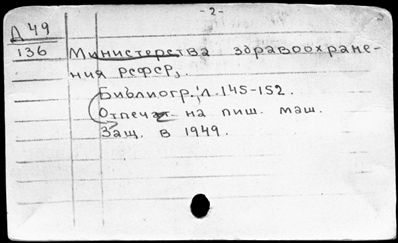 - 2 -
Д 49
136 Министерства здравоохране-
ния РСФСР,
Библиогр.: л. 145-152.
Отпечат. на пиш. маш.
Защ. в 1949.